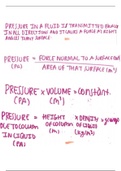 PRESSURE IN A FLUID IS TRANSMITTED EQUALLY
IN ALL DIRECTIONS AND IT CAUSES A FORCE AT RIGHT
ANGLES TO ANY SURFACE
PRESSURE = FORCE NORMAL TO A SURFACE (N)
(PA) AREA OF THAT SURFACE (m²)
PRESSURE × VOLUME = CONSTANT
(PA) (m³)
PRESSURE = HEIGHT × DENSITY ×
DUE TO COLUMN OF COLUMN OF LIQUID
IN LIQUID (m)
(PA)